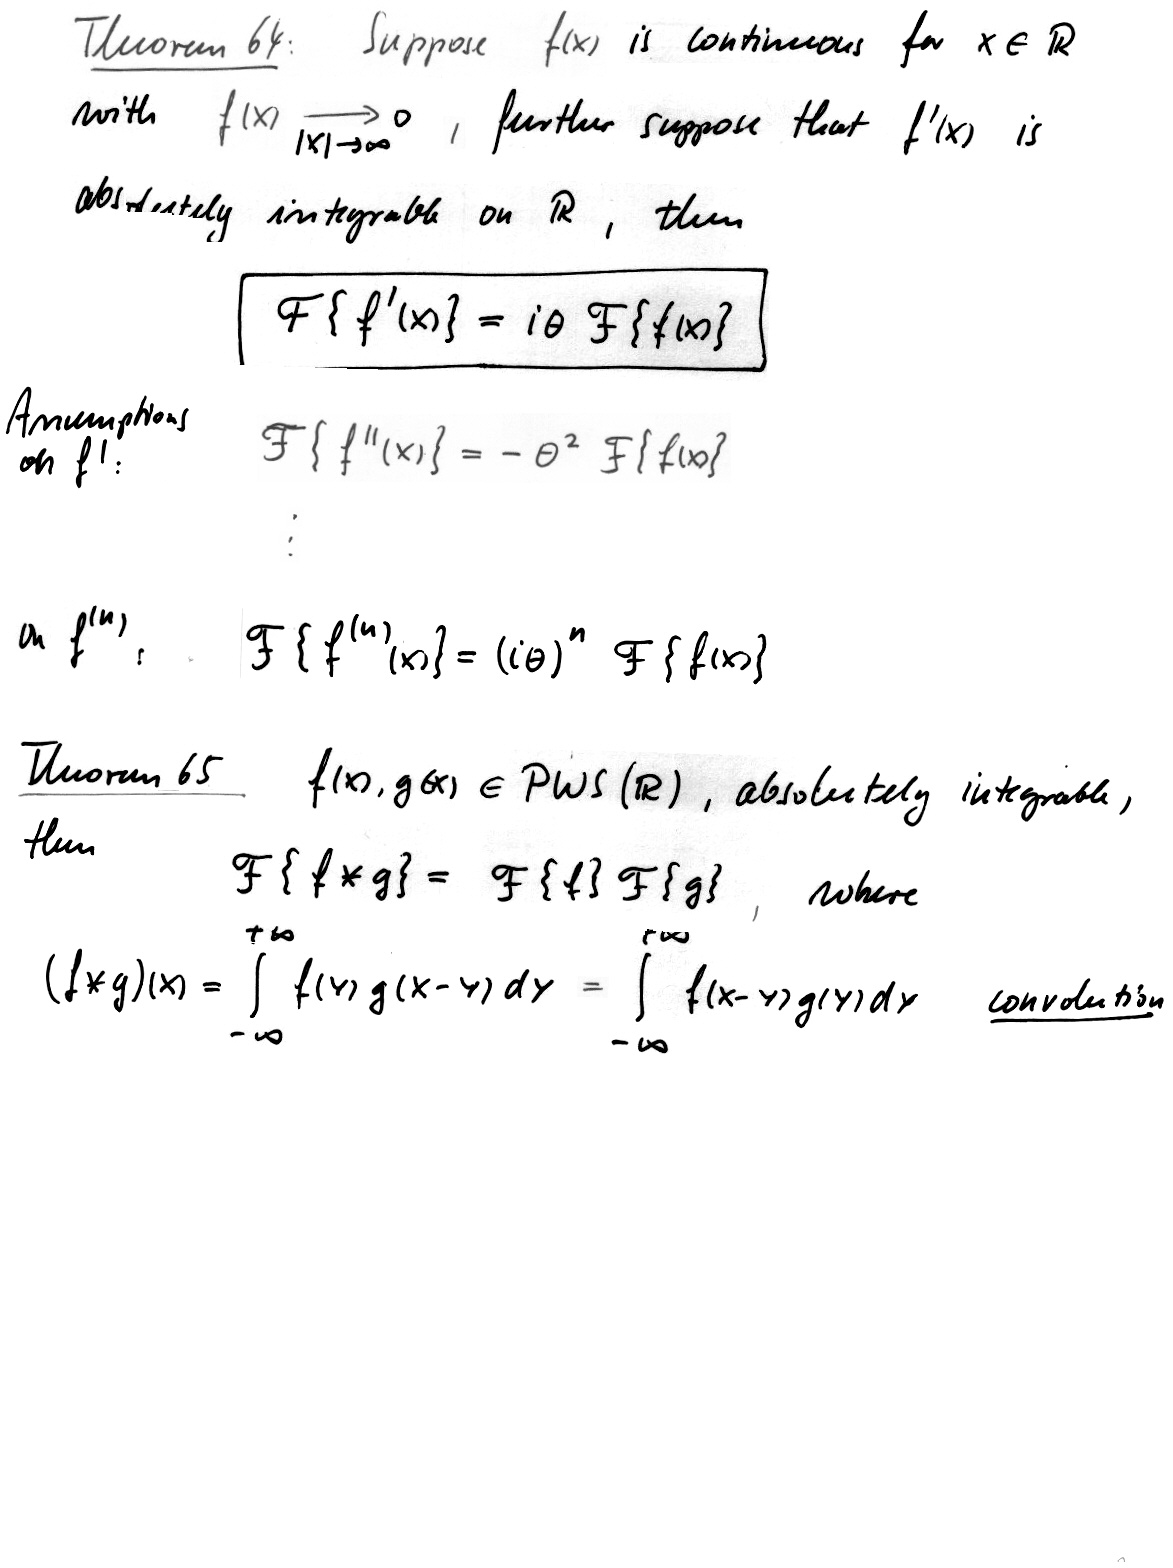 Theorem 64: Suppose f(x) is continuous for x ∈ ℝ
with f(x) ⟶ 0 , further suppose that f'(x) is
|x|→∞
absolutely integrable on ℝ , then
ℱ{f'(x)} = iθ ℱ{f(x)}
Assumptions
on f': ℱ{f''(x)} = - θ² ℱ{f(x)}
⋮
on f⁽ⁿ⁾: ℱ{f⁽ⁿ⁾(x)} = (iθ)ⁿ ℱ{f(x)}
Theorem 65 f(x), g(x) ∈ PWS(ℝ), absolutely integrable,
then
ℱ{f * g} = ℱ{f} ℱ{g} , where
(f*g)(x) = ∫_{-∞}^{+∞} f(y) g(x-y) dy = ∫_{-∞}^{+∞} f(x-y) g(y) dy convolution